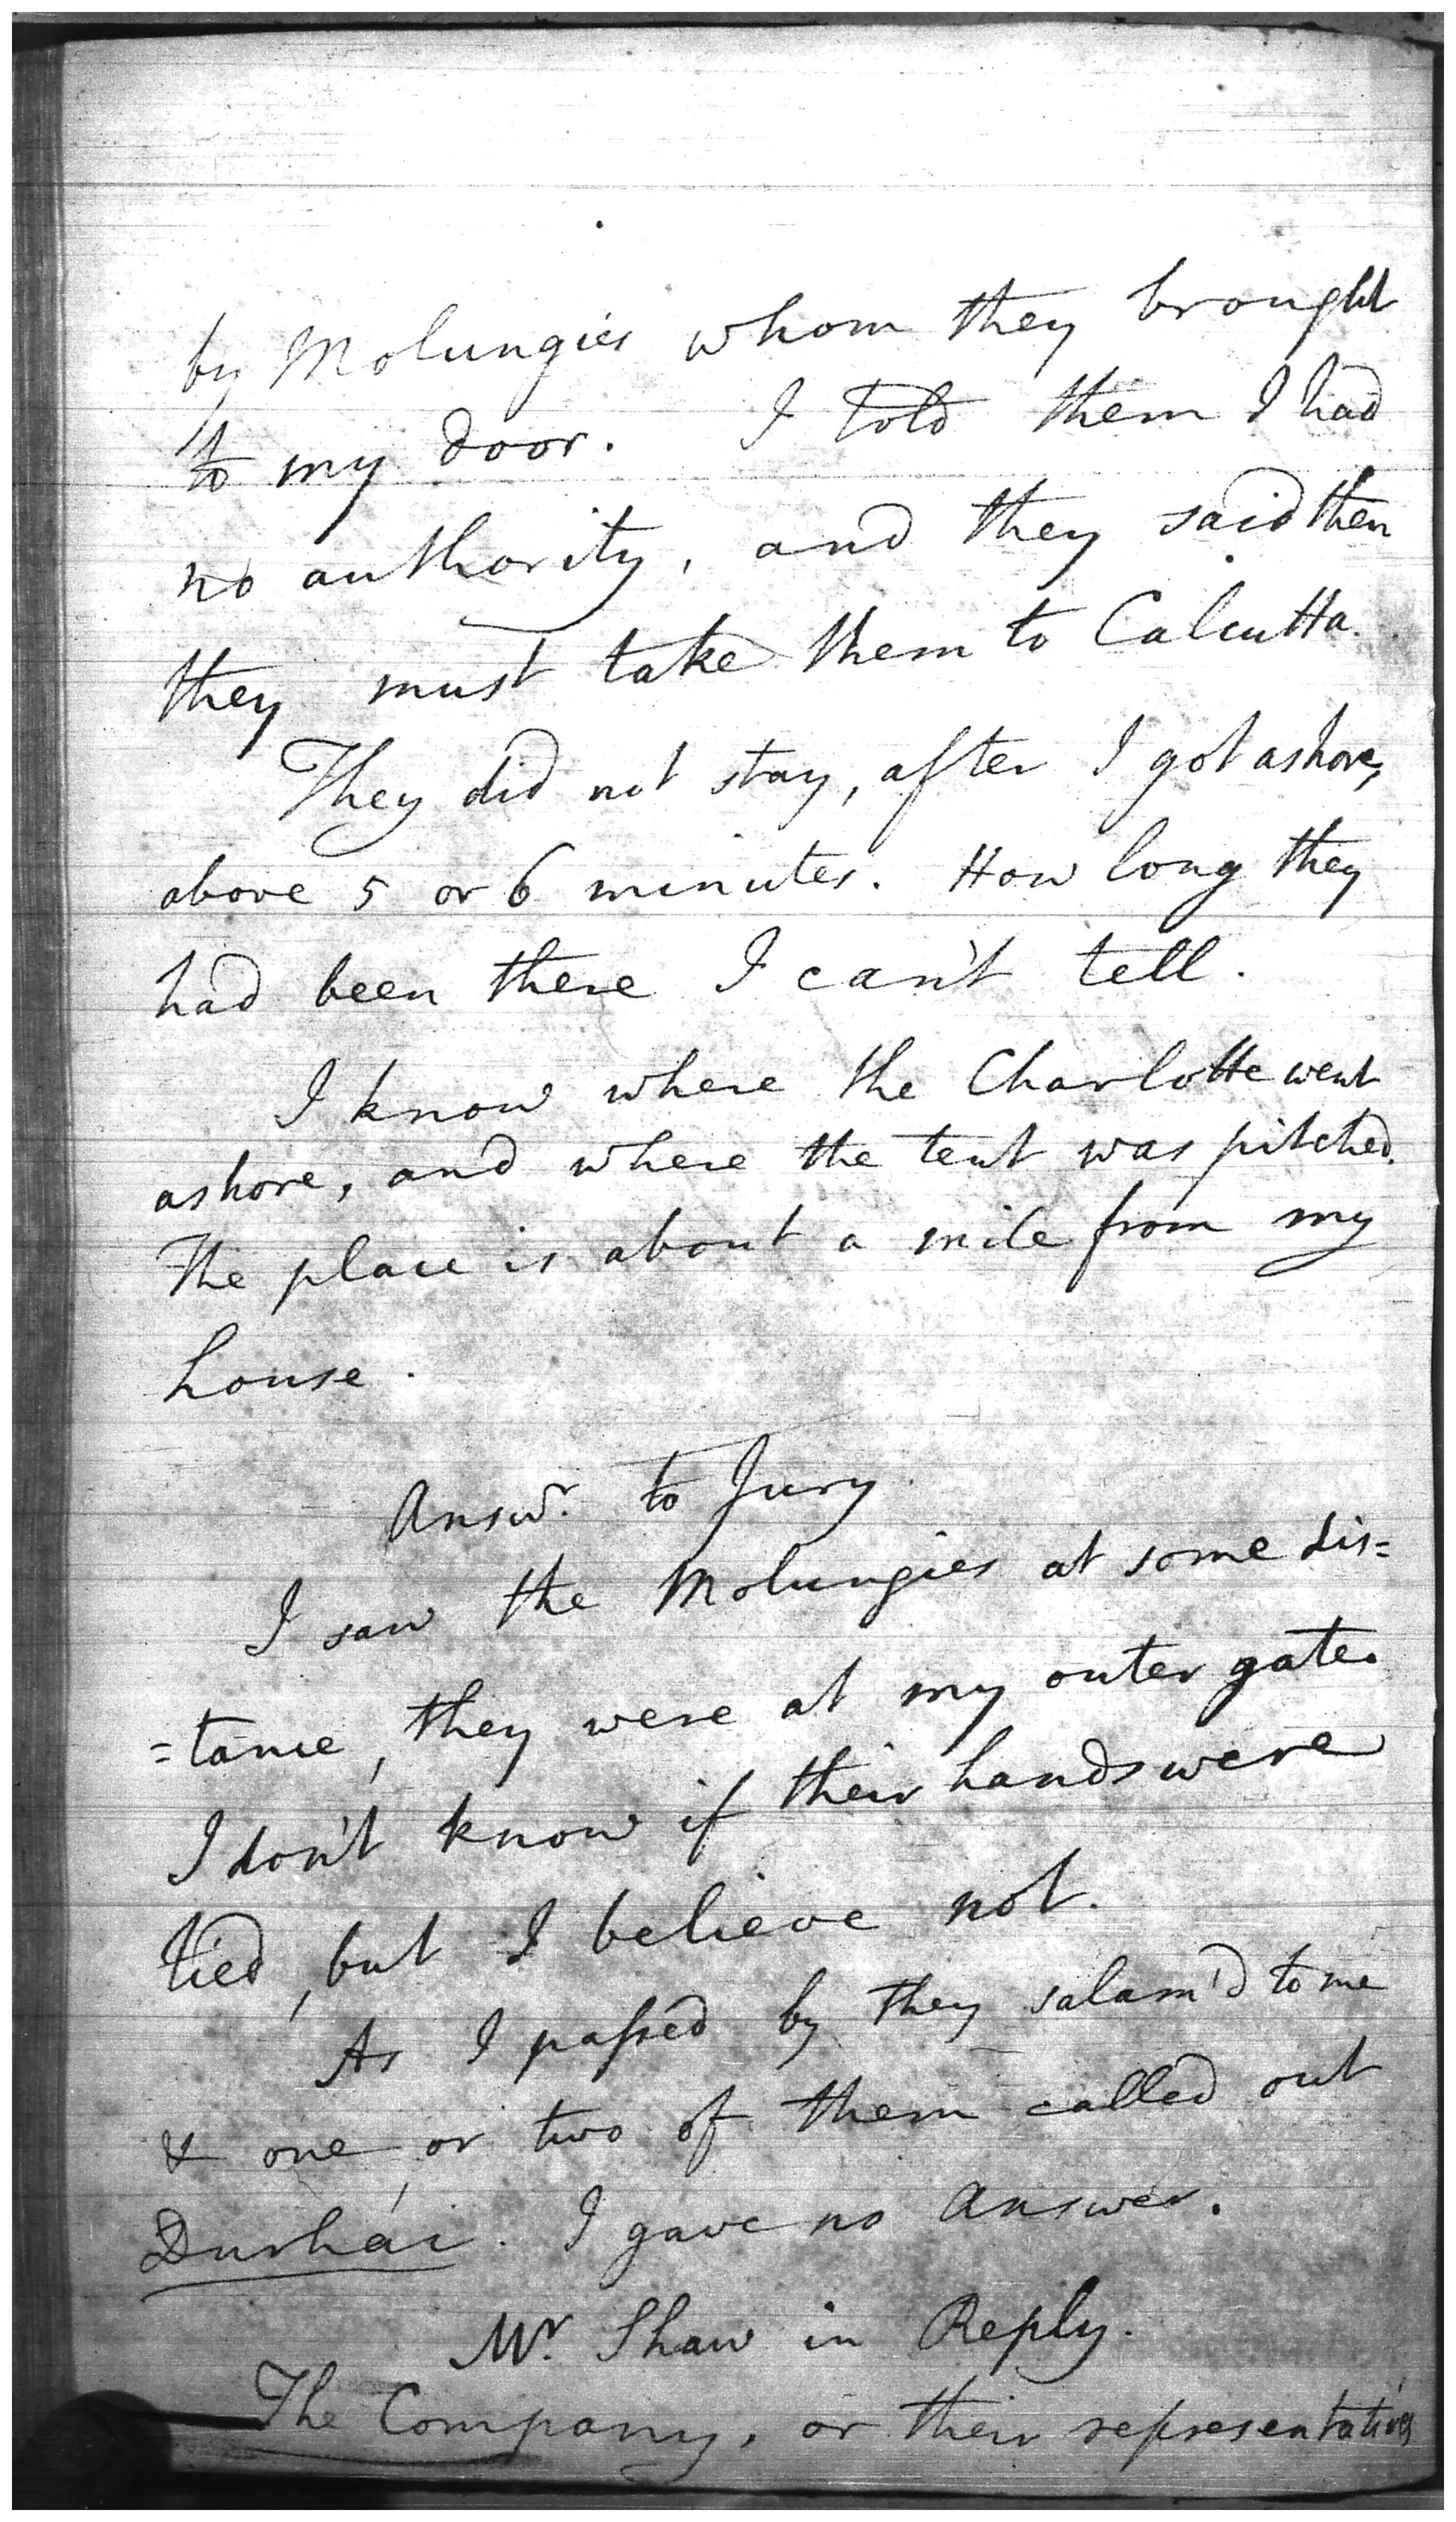 by Molungies whom they brought
to my door. I told them I had
no authority, and they said then
they must take them to Calcutta.
They did not stay, after I got ashore,
above 5 or 6 minutes. How long they
had been there I can't tell.
I know where the Charlotte went
ashore, and where the tent was pitched.
The place is about a mile from my
house.
Answr. to Jury.
I saw the Molungies at some dis=
=tance, they were at my outer gate.
I don't know if their hands were
tied, but I believe not.
As I passed by they salam'd to me
& one or two of them called out
Durhái. I gave no answer.
Mr. Shaw in Reply.
The Company, or their representatives